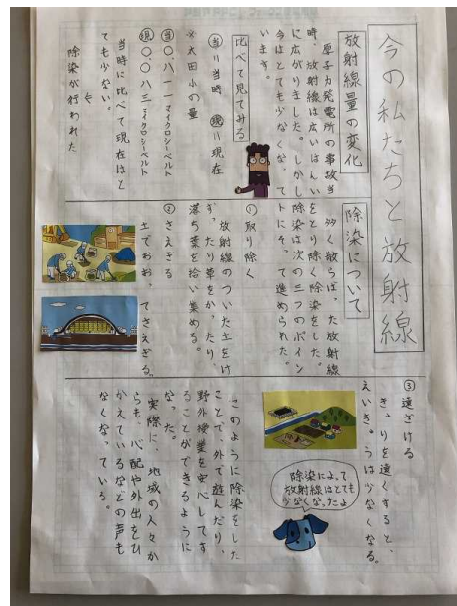 今の私たちと放射線
放射線量の変化
原子力発電所の事故当
時、放射線は広いはんい
に広がりました。しかし
今はとても少なくなって
います。
比べて見てみる
当=当時 現=現在
※太田小の量
当〇・八一一マイクロシーベルト
現〇・〇八三マイクロシーベルト
当時に比べて現在はと
ても少ない。
除染が行われた
除染について
多く散らばった放射線
をとり除く除染をした。
除染は次の三つのポイン
トにそって進められた。
①取り除く
放射線のついた土をけ
ずったり草をかったり
落ち葉を拾い集める。
②さえぎる
土でおおってさえぎる。
③遠ざける
きょりを遠くすると、
えいきょうは少なくなる。
除染によって
放射線はとても
少なくなったよ
このように除染をした
ことで、外で遊んだり、
野外授業を安心してす
ることができるように
なった。
実際に、地域の人々か
らも、心配や外出をひ
かえているなどの声も
なくなっている。